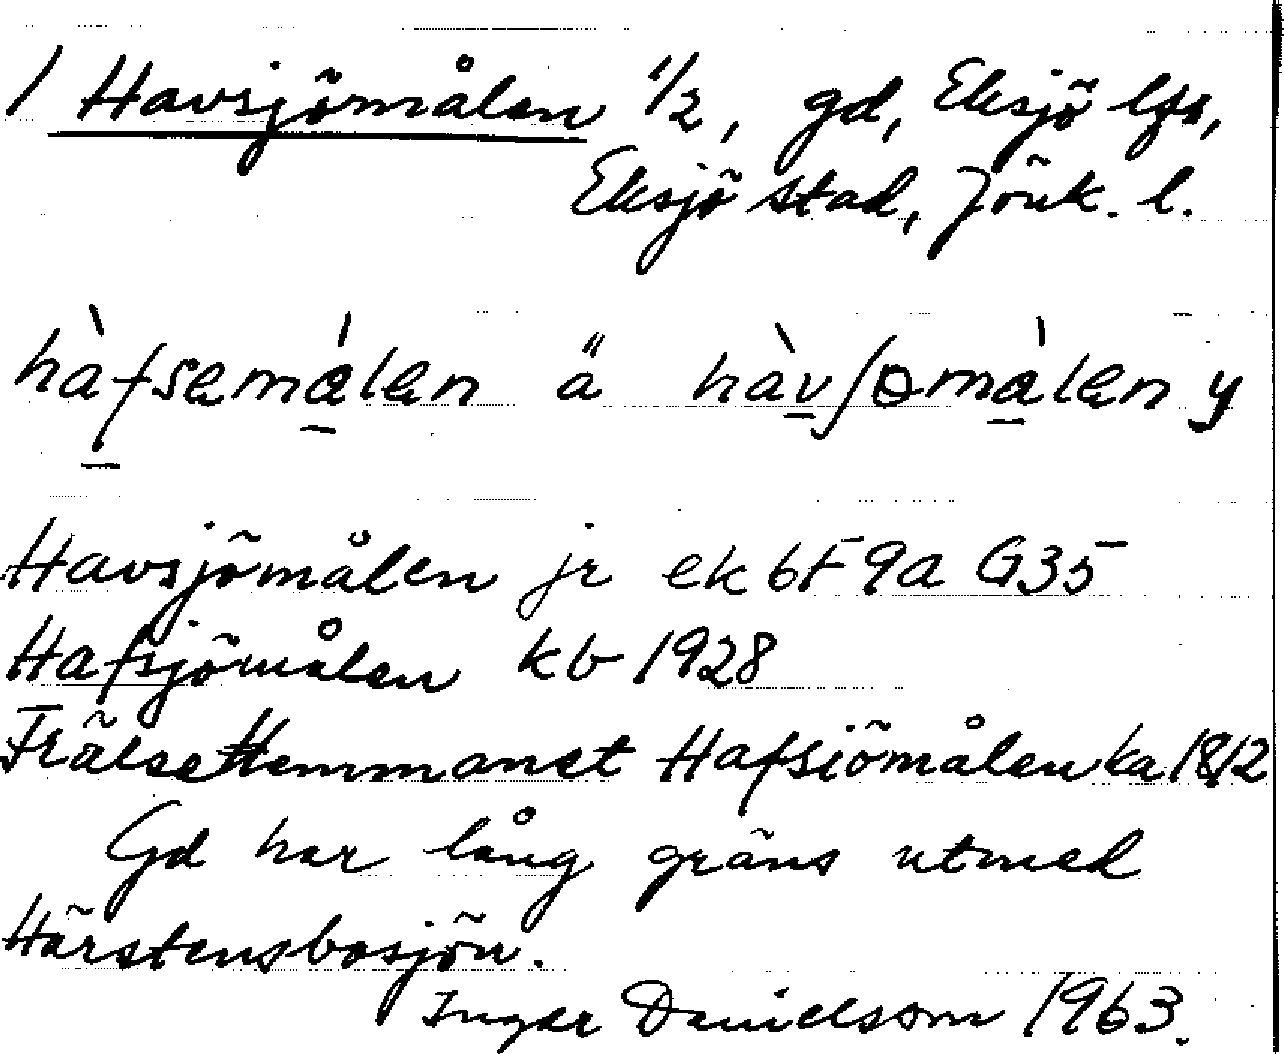 1 Havsjömålen 1/2, gd, Eksjö lfs,
Eksjö stad, Jönk. l.
hàfsemálen ä hàvʃəmàlen y
Havsjömålen jr ek 6F 9a G35
Hafsjömålen kb 1928
FrälseHemmanet Hafsiömålen ka 1812
Gd har lång gräns utmed
Härstensbosjön.
Inger Danielsson 1963.